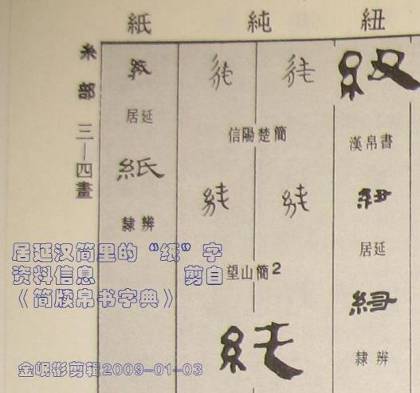 紙 純 紐
糸部 三—四畫
居延
隸辨
信陽楚簡
望山簡2
漢帛書
居延
隸辨
居延汉简里的“纸”字
资料信息 剪自
《简牍帛书字典》
金岷彬剪辑2009-01-03